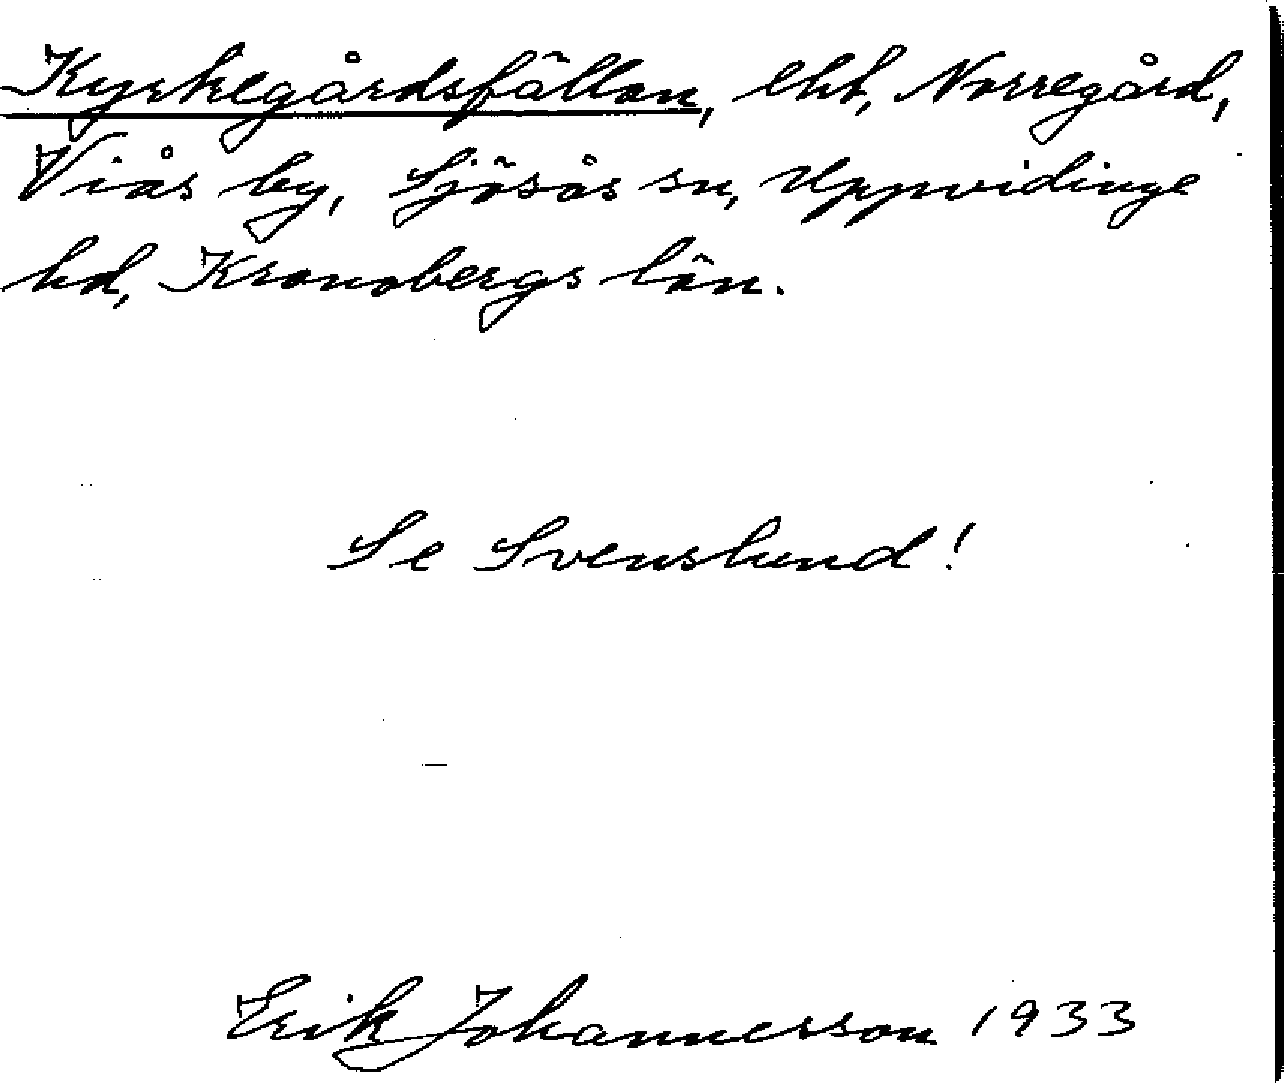 Kyrkegårdsfällan, eht, Norregård,
Viås by, Sjösås sn, Uppvidinge
hd, Kronobergs län.
Se Svenslund!
Erik Johannesson 1933